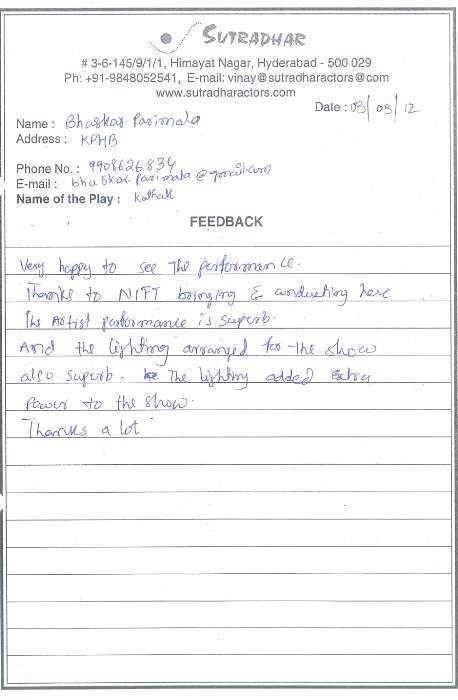 SUTRADHAR
# 3-6-145/9/1/1, Himayat Nagar, Hyderabad - 500 029
Ph: +91-9848052541, E-mail: vinay@sutradharactors@com
www.sutradharactors.com
Date : 03/03/12
Name : Bhaskar Parimala
Address : KPHB
Phone No. : 9908626834
E-mail : bhaskar.parimala@gmail.com
Name of the Play : Kathak
FEEDBACK
Very happy to see the performance.
Thanks to NIFT bringing & conducting here
The Artist performance is superb.
And the lighting arranged for the show
also superb. The lighting added Extra
power to the show.
Thanks a lot